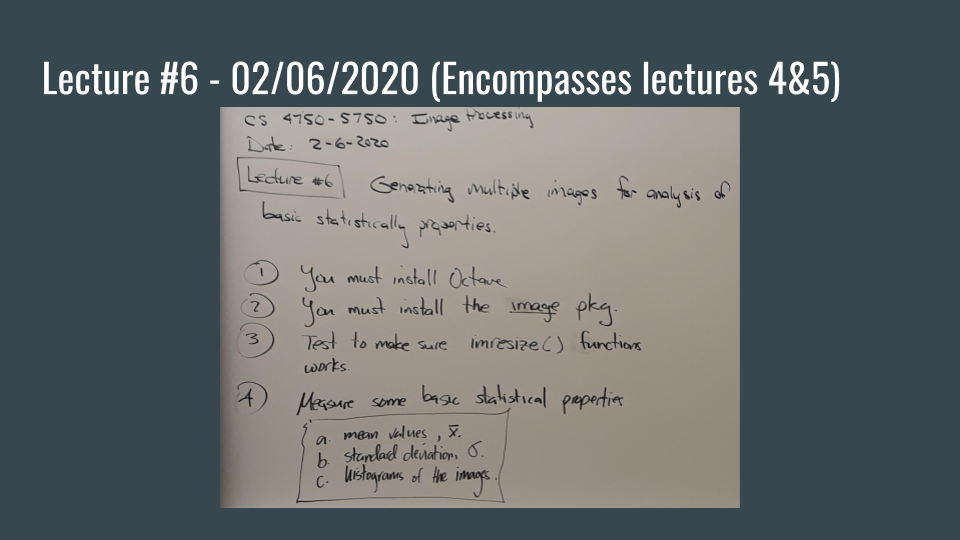 Lecture #6 - 02/06/2020 (Encompasses lectures 4&5)
CS 4750-5750: Image Processing
Date: 2-6-2020
Lecture #6 Generating multiple images for analysis of
basic statistically properties.
1 You must install Octave
2 You must install the image pkg.
3 Test to make sure imresize() functions
works.
4 Measure some basic statistical properties
a. mean values, x̄.
b. standard deviation, σ.
c. histograms of the images.